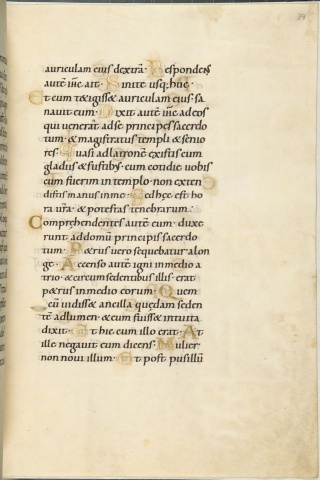 84
auriculam eius dextrā· Respondens
autē iħe ait· Sinite usq; huc·
Et cum tetigisset auriculam eius· sa
nauit eum· Dixit autē iħc ad eos
qui uenerāt ad se principes sacerdo
tum· & magistratus templi & senio
res· Quasi ad latronē existis cum
gladiis & fustibꝫ· cum cotidie uobis
cum fuerim in templo· non exten
distis manus in me· Sed hęc est ho
ra urā· & potestas tenebrarum·
Comprehendentes autē eum· duxe
runt ad domū principis sacerdo
tum· Petrus uero sequebatur a lon
ge· Accenso autē igni in medio a
trio· & circumsedentibus illis· erat
petrus in medio eorum· Quem
cū uidisset ancilla quędam seden
tē ad lumen· & eum fuisset intuita
dixit· Et hic cum illo erat· At
ille negauit eum dicens· Mulier·
non noui illum· Et post pusillū